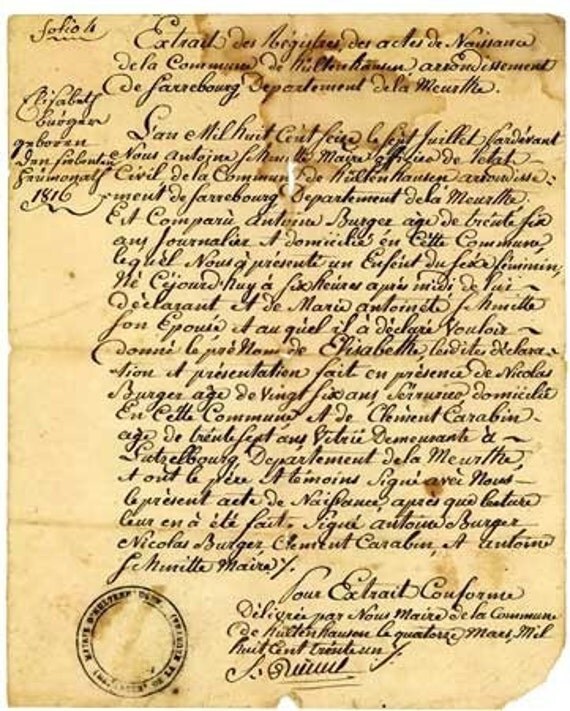 folio 4
Extrait des Régistres, des actes de Naissance
de la Commune de hültenhausen arrondissement
de Sarrebourg, Departement de la Meurthe.
Elisabeth
bürger
geboren
den siebenten
heumonath
1816
L'an Mil huit Cent seize le sept Juillet pardévant
Nous antoine schmitte Maire officier de l'etat
Civil de la Commune de hültenhausen arrondisse=
ment de Sarrebourg Departement de la Meurthe.
Est Comparü antoine Burger age de trente six
ans Journalier et domicilié en Cette Commune
lequel Nous a présente un Enfent du sexe féminin,
Né Céjourd'huy à six heures après midi de lui
déclarant et de Marie antoinété schmitte
son Epouse et auquel il à déclaré vouloir
donné le préNom de Elisabethe lesdites déclara=
tion et présentation fait en présence de Nicolas
Burger age de vingt six ans Serrurier domicilié
En Cette Commune et de Clement Carabin
age de trente sept ans Vitrié Demeurante à
Lutzelbourg, Departement de la Meurthe,
et ont le père et témoins signé avec Nous
le présent acte de Naissance, après que lecture
leur en à été fait. Signé antoine Burger
Nicolas Burger Clement Carabin et antoine
schmitte Maire ./.
Pour Extrait Conforme
Délivrée par Nous Maire de la Commune
de hültenhausen le quatorze Mars Mil
huit Cent trente un ./.
MAIRIE D'HULTENHAUSEN
DE LA